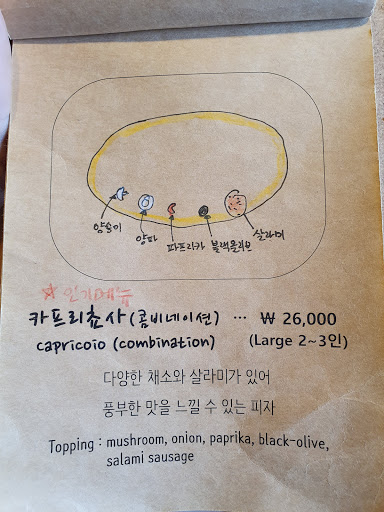 양송이 양파 파프리카 블랙올리브 살라미
☆ 인기메뉴
카프리쵸사 (콤비네이션) ··· ₩ 26,000
capricoio (combination) (Large 2~3인)
다양한 채소와 살라미가 있어
풍부한 맛을 느낄 수 있는 피자
Topping : mushroom, onion, paprika, black-olive,
salami sausage